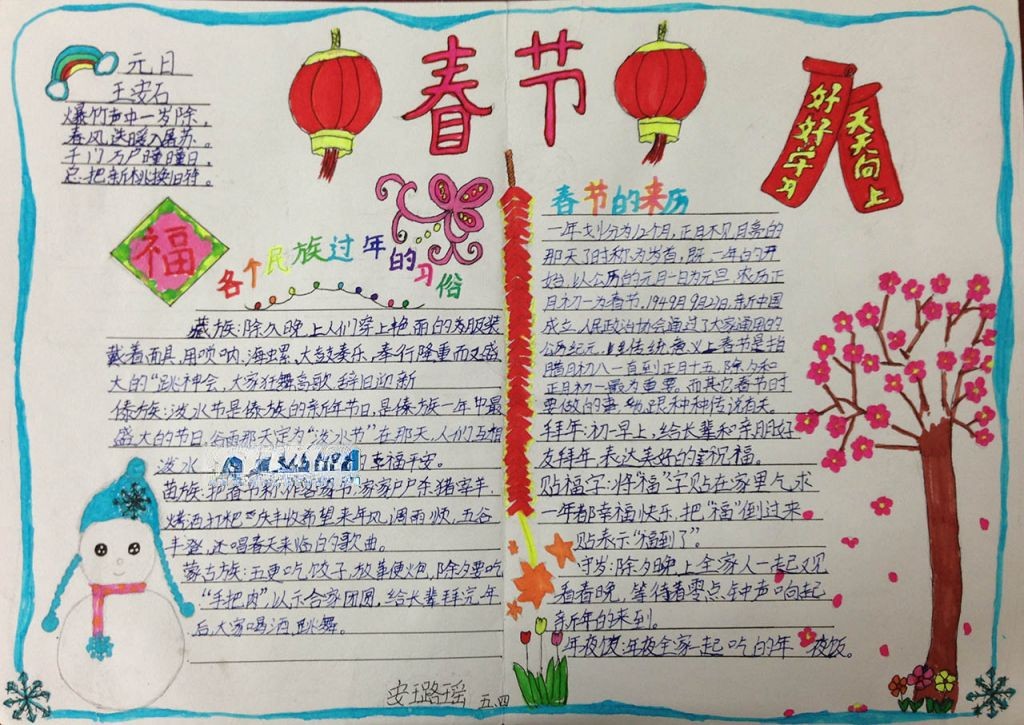 春节
元日
王安石
爆竹声中一岁除，
春风送暖入屠苏。
千门万户曈曈日，
总把新桃换旧符。
好好学习
天天向上
福
各个民族过年的习俗
藏族：除夕晚上人们穿上艳丽的衣服装
戴着面具，用唢呐、海虫累、大鼓奏乐，奉行隆重而又盛
大的“跳神会，大家狂舞高歌 辞旧迎新
傣族：泼水节是傣族的新年节日，是傣族一年中最
盛大的节日，谷雨那天定为“泼水节”在那天，人们互相
泼水 的幸福平安。
苗族：把春节称作客家节，家家户户杀猪宰羊，
烤酒打粑 庆丰收希望来年风调雨顺，五谷
丰登，还唱春天来临白的歌曲。
蒙古族：五更吃饺子，放鞭便火包，除夕要吃
“手把肉”以示合家团圆，给长辈拜完年
后，大家喝酒，跳舞。
春节的来历
一年划分为12个月，正月不见月亮的
那天了时称为岁首，既一年的开
始，以公历的元月一日为元旦 农历正
月初一为春节，1949月9月2日，新中国
成立，人民政治协会通过了大家通用的
公历纪元，传统意义上春节是指
腊月初八一直到正月十五，除夕和
正月初一最为重要。而其它春节时
要做的事 跟种种传说有关。
拜年：初一早上，给长辈和亲朋好
友拜年，表达美好的祝福。
贴福字：将“福”字贴在家里气求
一年都幸福快乐，把“福”倒过来
贴表示“福到了”。
守岁：除夕晚上全家人一起又见
看春晚，等待着零点钟声响起
新年的来到。
年夜饭：年夜全家一起吃的年夜饭。
安珏路瑶 五.四